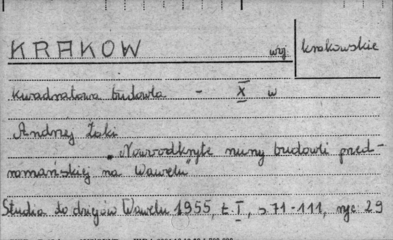 KRAKOW woj. krakowskie
kwadratowa budowla - X w
Andrzej Żaki
"Nowoodkryte ruiny budowli przed-
romańskiej na Wawelu"
Studia do dziejów Wawelu 1955, t. I, s 71-111, ryc. 29